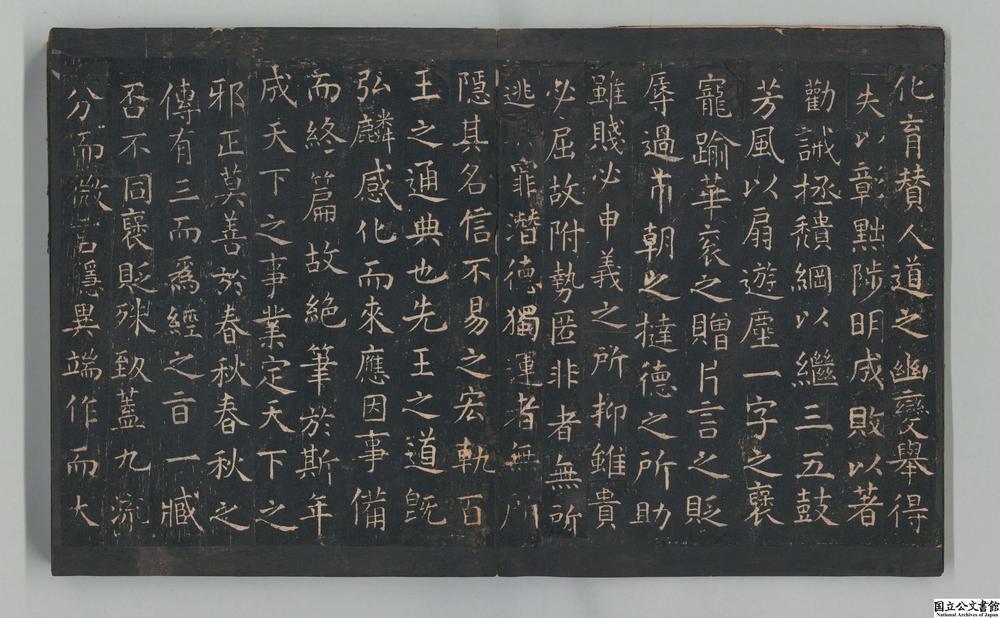 化育贊人道之幽變舉得
失以彰黜陟明成敗以著
勸誡拯頹綱以繼三五鼓
芳風以扇遊塵一字之襃
寵踰華衮之贈片言之貶
辱過市朝之撻德之所助
雖賤必申義之所抑雖貴
必屈故附勢匿非者無所
逃罪潛德獨運者無所
隱其名信不易之宏軌百
王之通典也先王之道旣
弘麟感化而來應因事備
而終篇故絶筆於斯年
成天下之事業定天下之
邪正莫善於春秋春秋之
傳有三而爲經之旨一臧
否不同襃貶殊致蓋九流
分而微言隱異端作而大
国立公文書館
National Archives of Japan